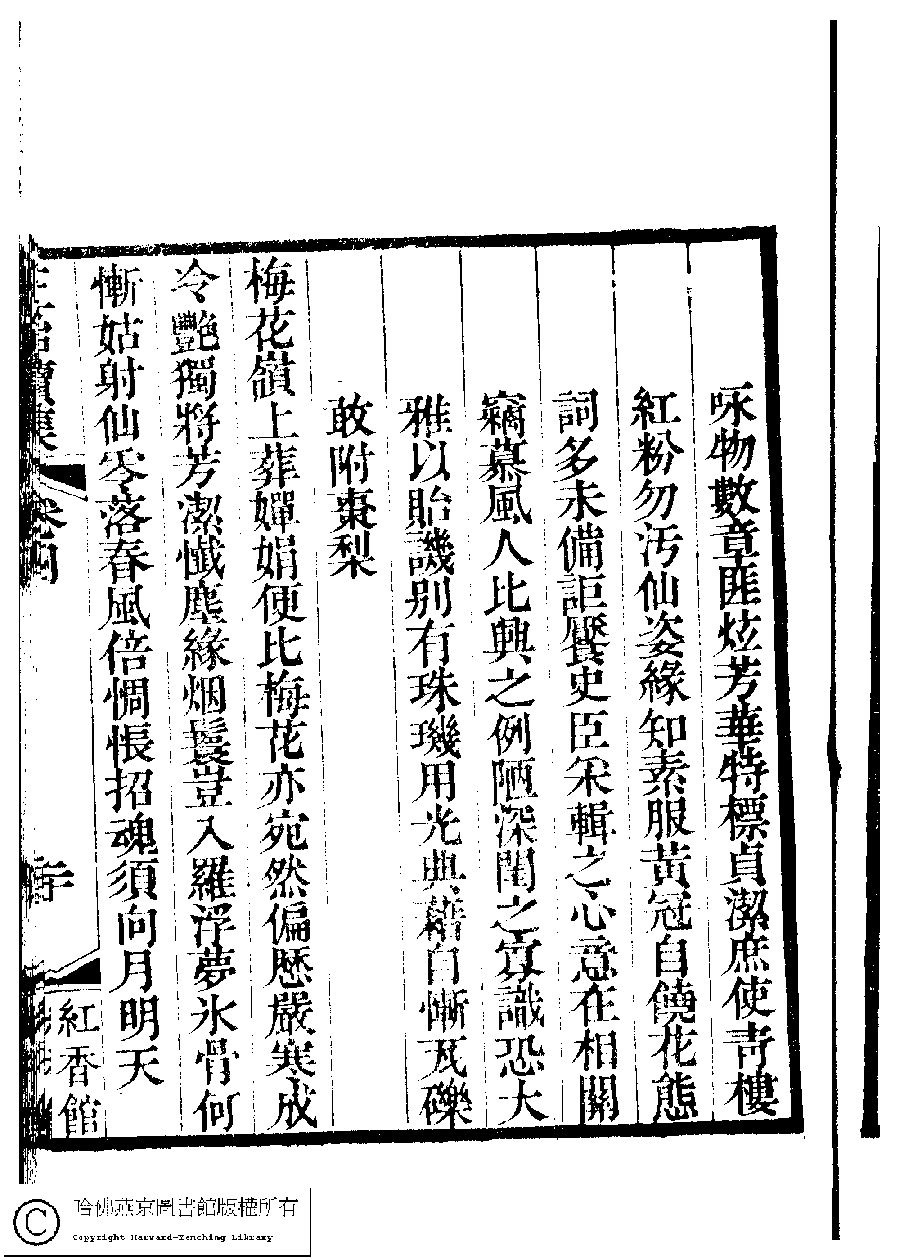 咏物數章匪炫芳華特標貞潔庶使青樓
紅粉勿汚仙姿緣知素服黃冠自饒花態
詞多未備詎饜史臣采輯之心意在相關
竊慕風人比興之例陋深閨之寡識恐大
雅以貽譏别有珠璣用光典藉自慚瓦礫
敢附棗梨
梅花嶺上葬嬋娟便比梅花亦宛然偏歷嚴寒成
冷艷獨將芳潔懺塵緣烟鬟豈入羅浮夢氷骨何
慚姑射仙零落春風倍惆悵招魂須向月明天
續集 卷四
紅香館
哈佛燕京圖書館版權所有
Copyright Harvard-Yenching Library